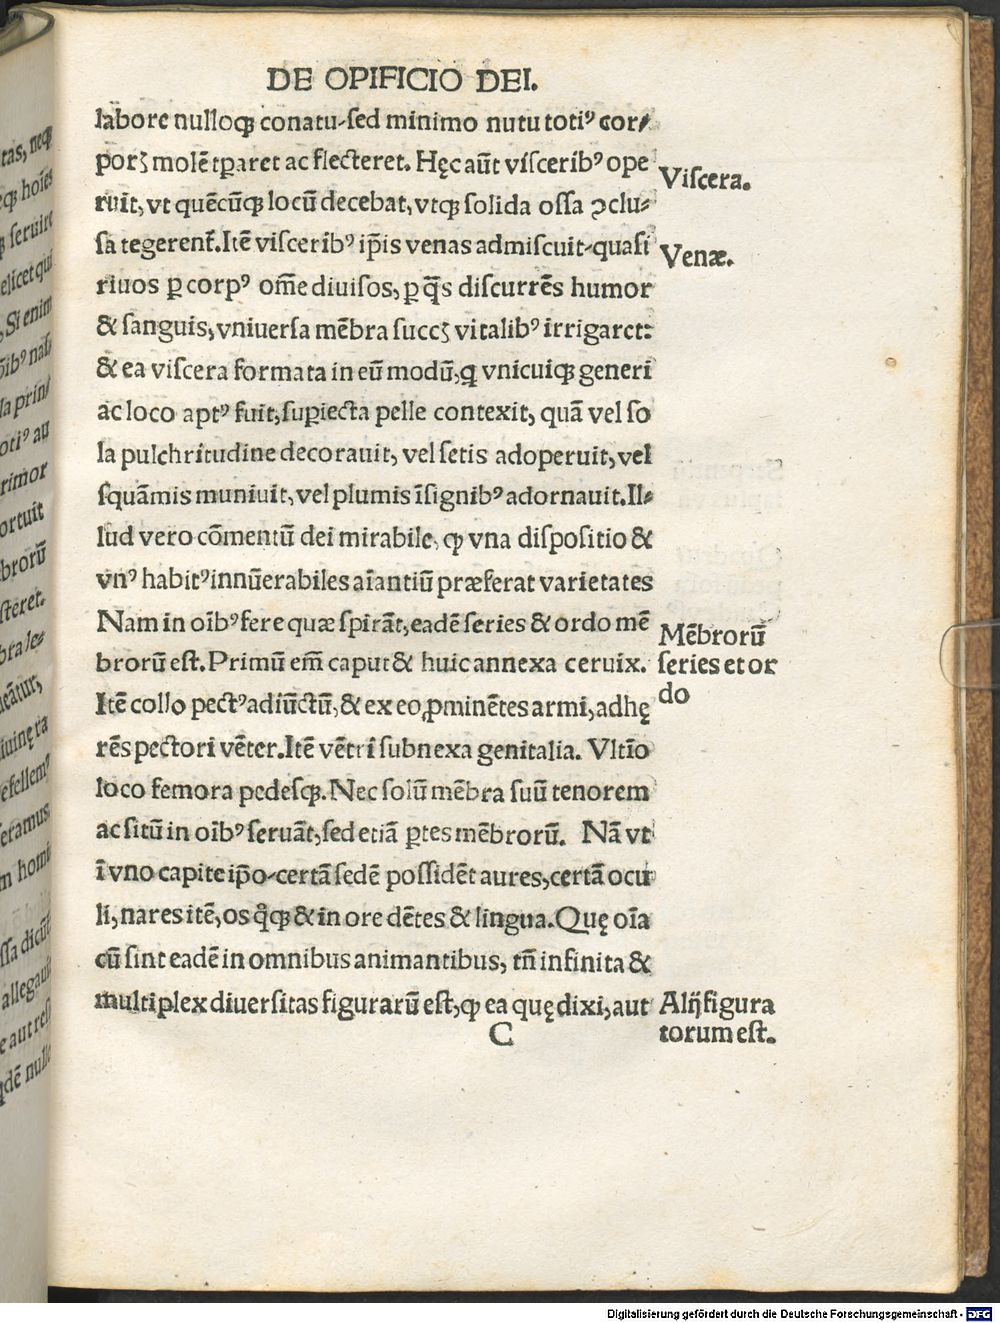 DE OPIFICIO DEI.
labore nulloqꝫ conatu-sed minimo nutu totiꝰ cor/
porꝫ molē tꝑaret ac flecteret. Hęc aūt visceribꝰ ope
ruit, vt quēcūqꝫ locū decebat, vtqꝫ solida ossa ꝯclu-
sa tegerent̃. Itē visceribꝰ ip̄is venas admiscuit-quasi
riuos ꝑ corpꝰ om̄e diuisos, ꝑ q̄s discurrēs humor
& sanguis, vniuersa mēbra succꝫ vitalibꝰ irrigaret:
& ea viscera formata in eū modū, q vnicuiqꝫ generi
ac loco aptꝰ fuit, suꝑiecta pelle contexit, quā vel so
la pulchritudine decorauit, vel setis adoperuit, vel
squāmis muniuit, vel plumis īsignibꝰ adornauit. Il-
lud vero cōmentū dei mirabile, ꝙ vna dispositio &
vnꝰ habitꝰ innūerabiles aīantiū præferat varietates
Nam in oībꝰ fere quæ spirāt, eadē series & ordo mē
brorū est. Primū em̄ caput & huic annexa ceruix.
Itē collo pectꝰ adiūctū, & ex eo ꝓminētes armi, adhę
rēs pectori vēter. Itē vētri subnexa genitalia. Vltīo
loco femora pedesqꝫ. Nec solū mēbra suū tenorem
ac sitū in oībꝰ seruāt, sed etiā ꝑtes mēbrorū. Nā vt
ī vno capite ip̄o-certā sedē possidēt aures, certā ocu
li, nares itē, os q̊qꝫ & in ore dētes & lingua. Quę oīa
cū sint eadē in omnibus animantibus, tn̄ infinita &
multiplex diuersitas figurarū est, ꝙ ea quę dixi, aut
C
Viscera.
Venæ.
Mēbrorū
series et or
do
Alij figura
torum est.
tas, neqꝫ
eqꝫ hoīes
seruire
Si enim
la prin/
rimor
ortuit
brorū
steret.
bra le-
homi
allegaui
Digitalisierung gefördert durch die Deutsche Forschungsgemeinschaft - DFG